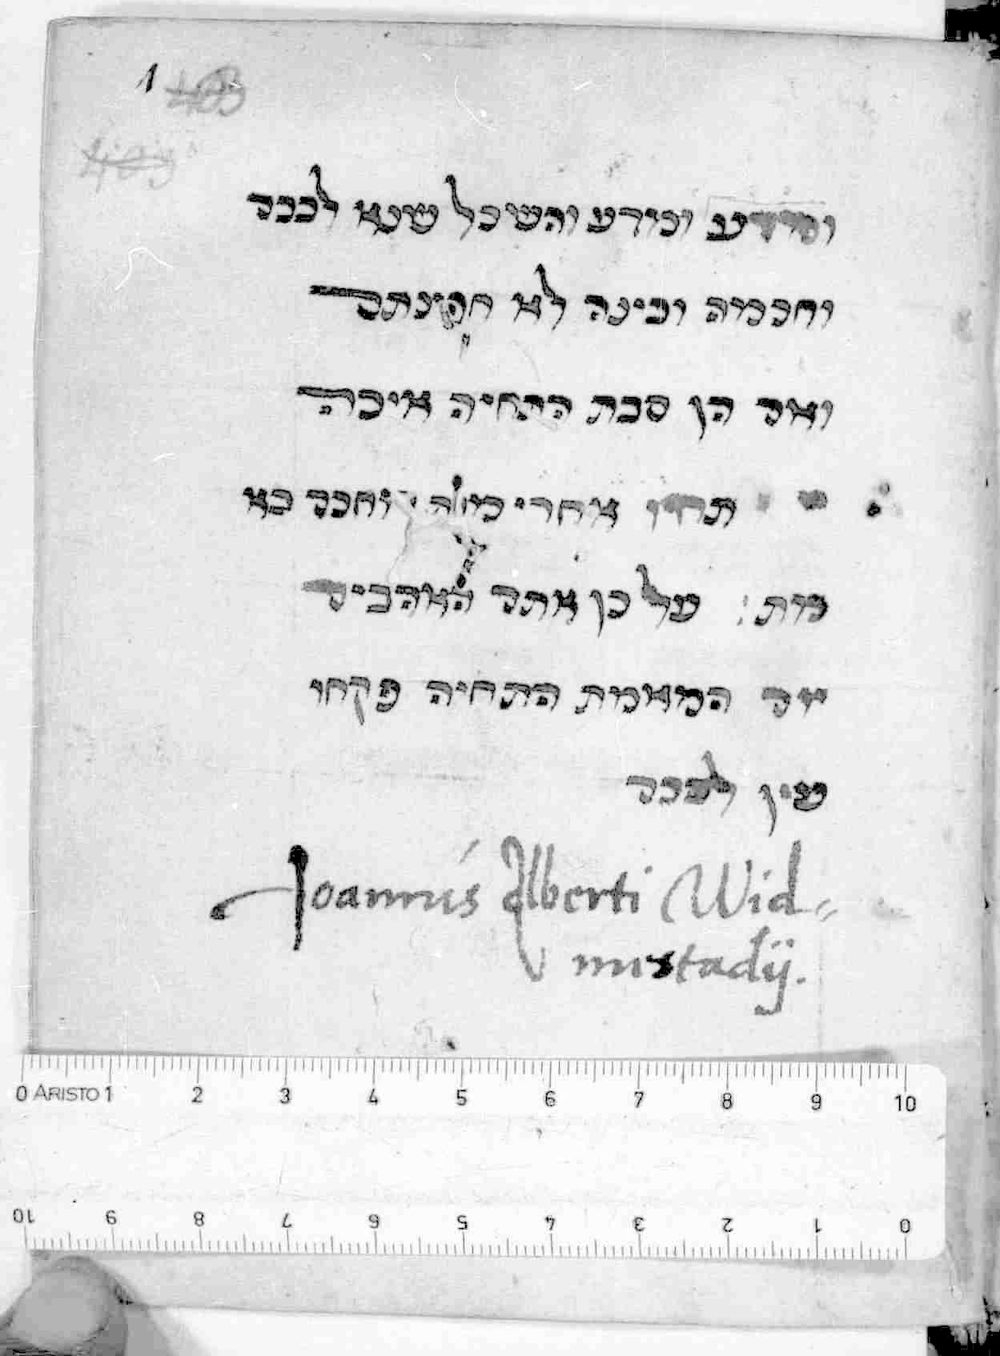 1 403
403
ומדע ומידע והשכל שנא לבבך
וחכמה ובינה לא חפינתך
ואך הן סבת התחיה איכה
אחרי מות וחכך בא
מות : על כן אתך האהביך
המאמת התחיה פקחו
עין לבבך
Joannis Alberti Wid=
mistadij.
0 ARISTO 1 2 3 4 5 6 7 8 9 10
10 9 8 7 6 5 4 3 2 1 0